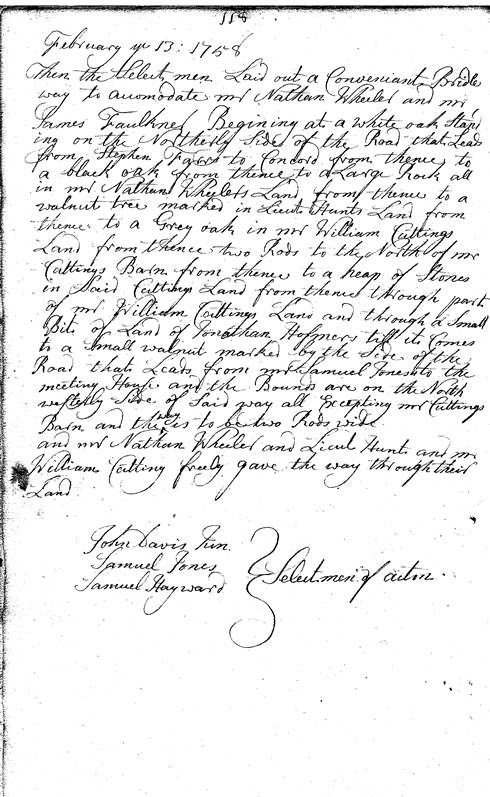 118
February ye 13: 1758
Then the Select men Laid out a Conveniant Bridle
way to acomodate mr Nathan Wheeler and mr
James Faulkner Begining at a white oak Stand
ing on the Northerly Side of the Road that Leads
from Stephen Farrs to Concord from thence to
a black oak from thence to a Large Rock all
in mr Nathan Wheelers Land from thence to a
walnut tree marked in Lieut Hunts Land from
thence to a Grey oak in mr William Cuttings
Land from thence two Rods to the North of mr
Cuttings Barn from thence to a heap of Stones
in Said Cuttings Land from thence through part
of mr William Cuttings Land and through a Small
Bite of Land of Jonathan Hosmers till it Comes
to a Small walnut marked by the Side of the
Road that Leads from mr Samuel Jones to the
meeting House and the Bounds are on the North
westerly Side of Said way all Excepting mr Cuttings
Barn and the way is to be two Rods wide
and mr Nathan Wheeler and Lieut Hunt and mr
William Cutting freely gave the way through their
Land
John Davis Jun.
Samuel Jones
Samuel Hayward
Select men of acton.